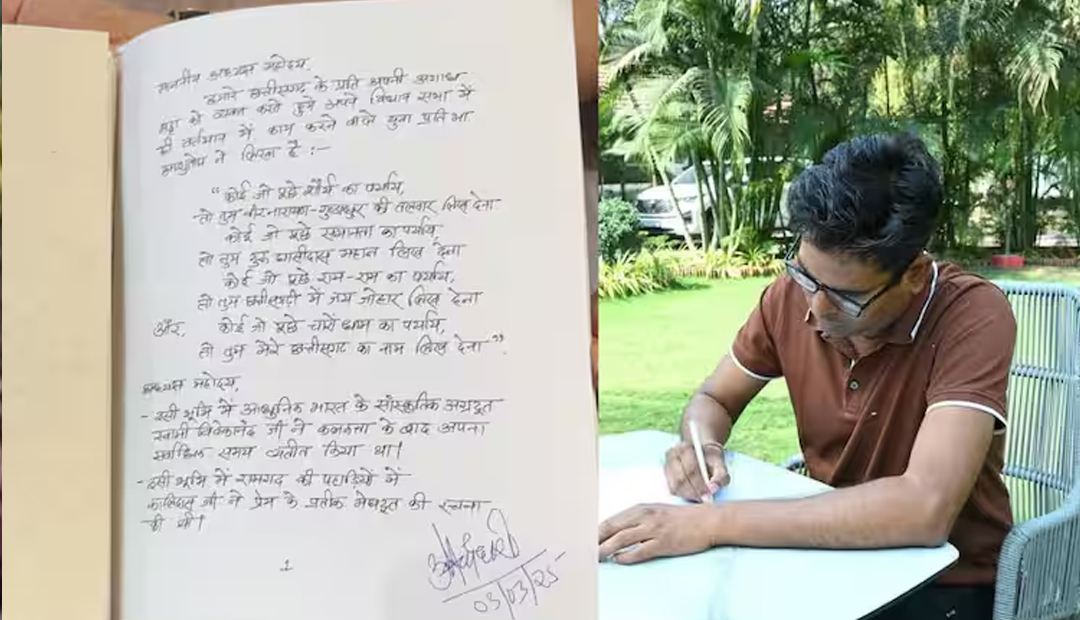 माननीय अध्यक्ष महोदय,
हमारे छत्तीसगढ़ के प्रति अपनी अगाध
श्रद्धा को व्यक्त करते हुये अपने विधान सभा में
ही वर्तमान में काम करने वाले युवा प्रतिभा
ने लिखा है :-
"कोई जो पूछे शौर्य का पर्याय,
तो तुम वीरनारायण-गुण्डाधुर की तलवार लिख देना
कोई जो पूछे समानता का पर्याय,
तो तुम गुरु घासीदास महान लिख देना
कोई जो पूछे राम-राम का पर्याय,
तो तुम छत्तीसगढ़ी में जय जोहार लिख देना
और, कोई जो पूछे चारों धाम का पर्याय,
तो तुम मेरे छत्तीसगढ़ का नाम लिख देना".
अध्यक्ष महोदय,
- इसी भूमि में आधुनिक भारत के सांस्कृतिक अग्रदूत
स्वामी विवेकानंद जी ने कलकत्ता के बाद अपना
सर्वाधिक समय व्यतीत किया था।
- इसी भूमि में रामगढ़ की पहाड़ियों में
कालिदास जी ने प्रेम के प्रतीक मेघदूत की रचना
की थी।
1
03/03/25